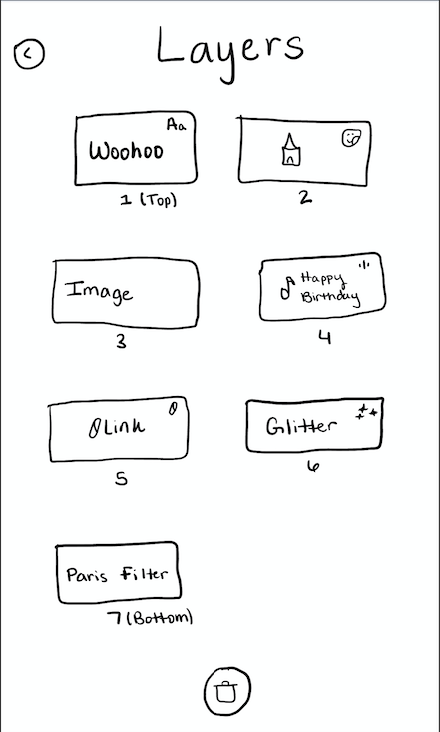 Layers
Aa
Woohoo
1 (Top)
2
Image
3
Happy
Birthday
4
Link
5
Glitter
6
Paris Filter
7 (Bottom)